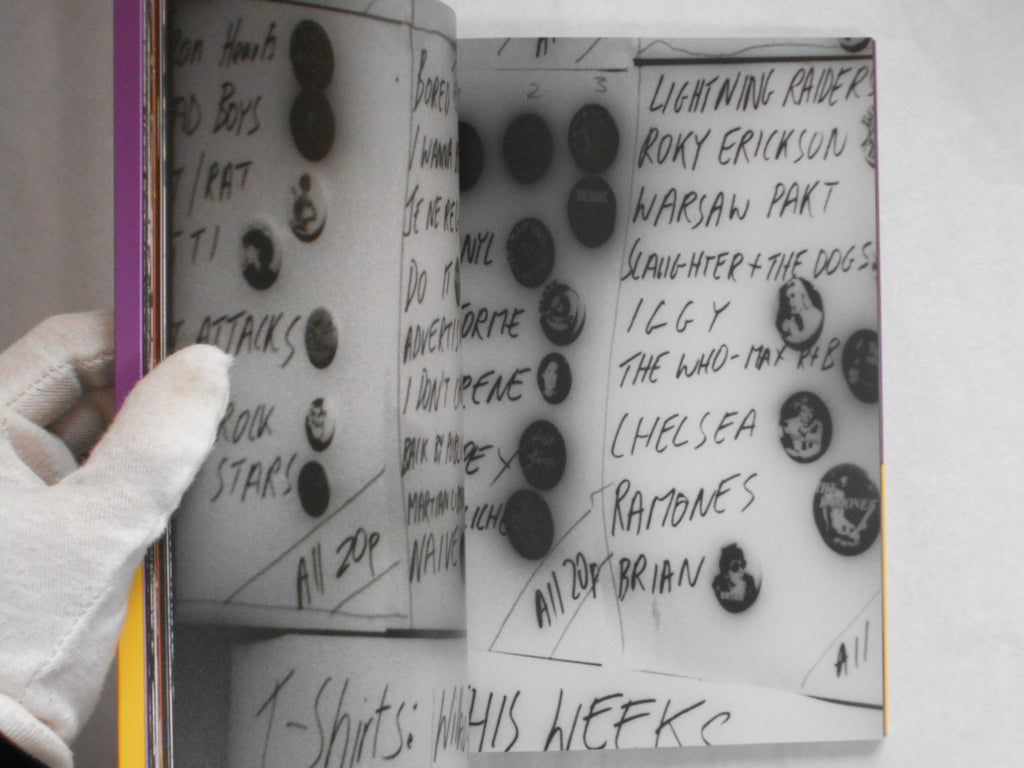 Hearts
BOYS
/RAT
ATTACKS
ROCK
STARS
All 20p
BORED
I WANNA
JE NE RE
DO IT
ADVERTI
I DON'T
BACK BY
MARTIAN
NAIVE
T-Shirts:
2 3
NYL
ORME
ENE
All 20p
LIGHTNING RAIDERS
ROKY ERICKSON
WARSAW PAKT
SLAUGHTER + THE DOGS
IGGY
THE WHO-MAX R+B
CHELSEA
RAMONES
BRIAN
All
HIS WEEKS